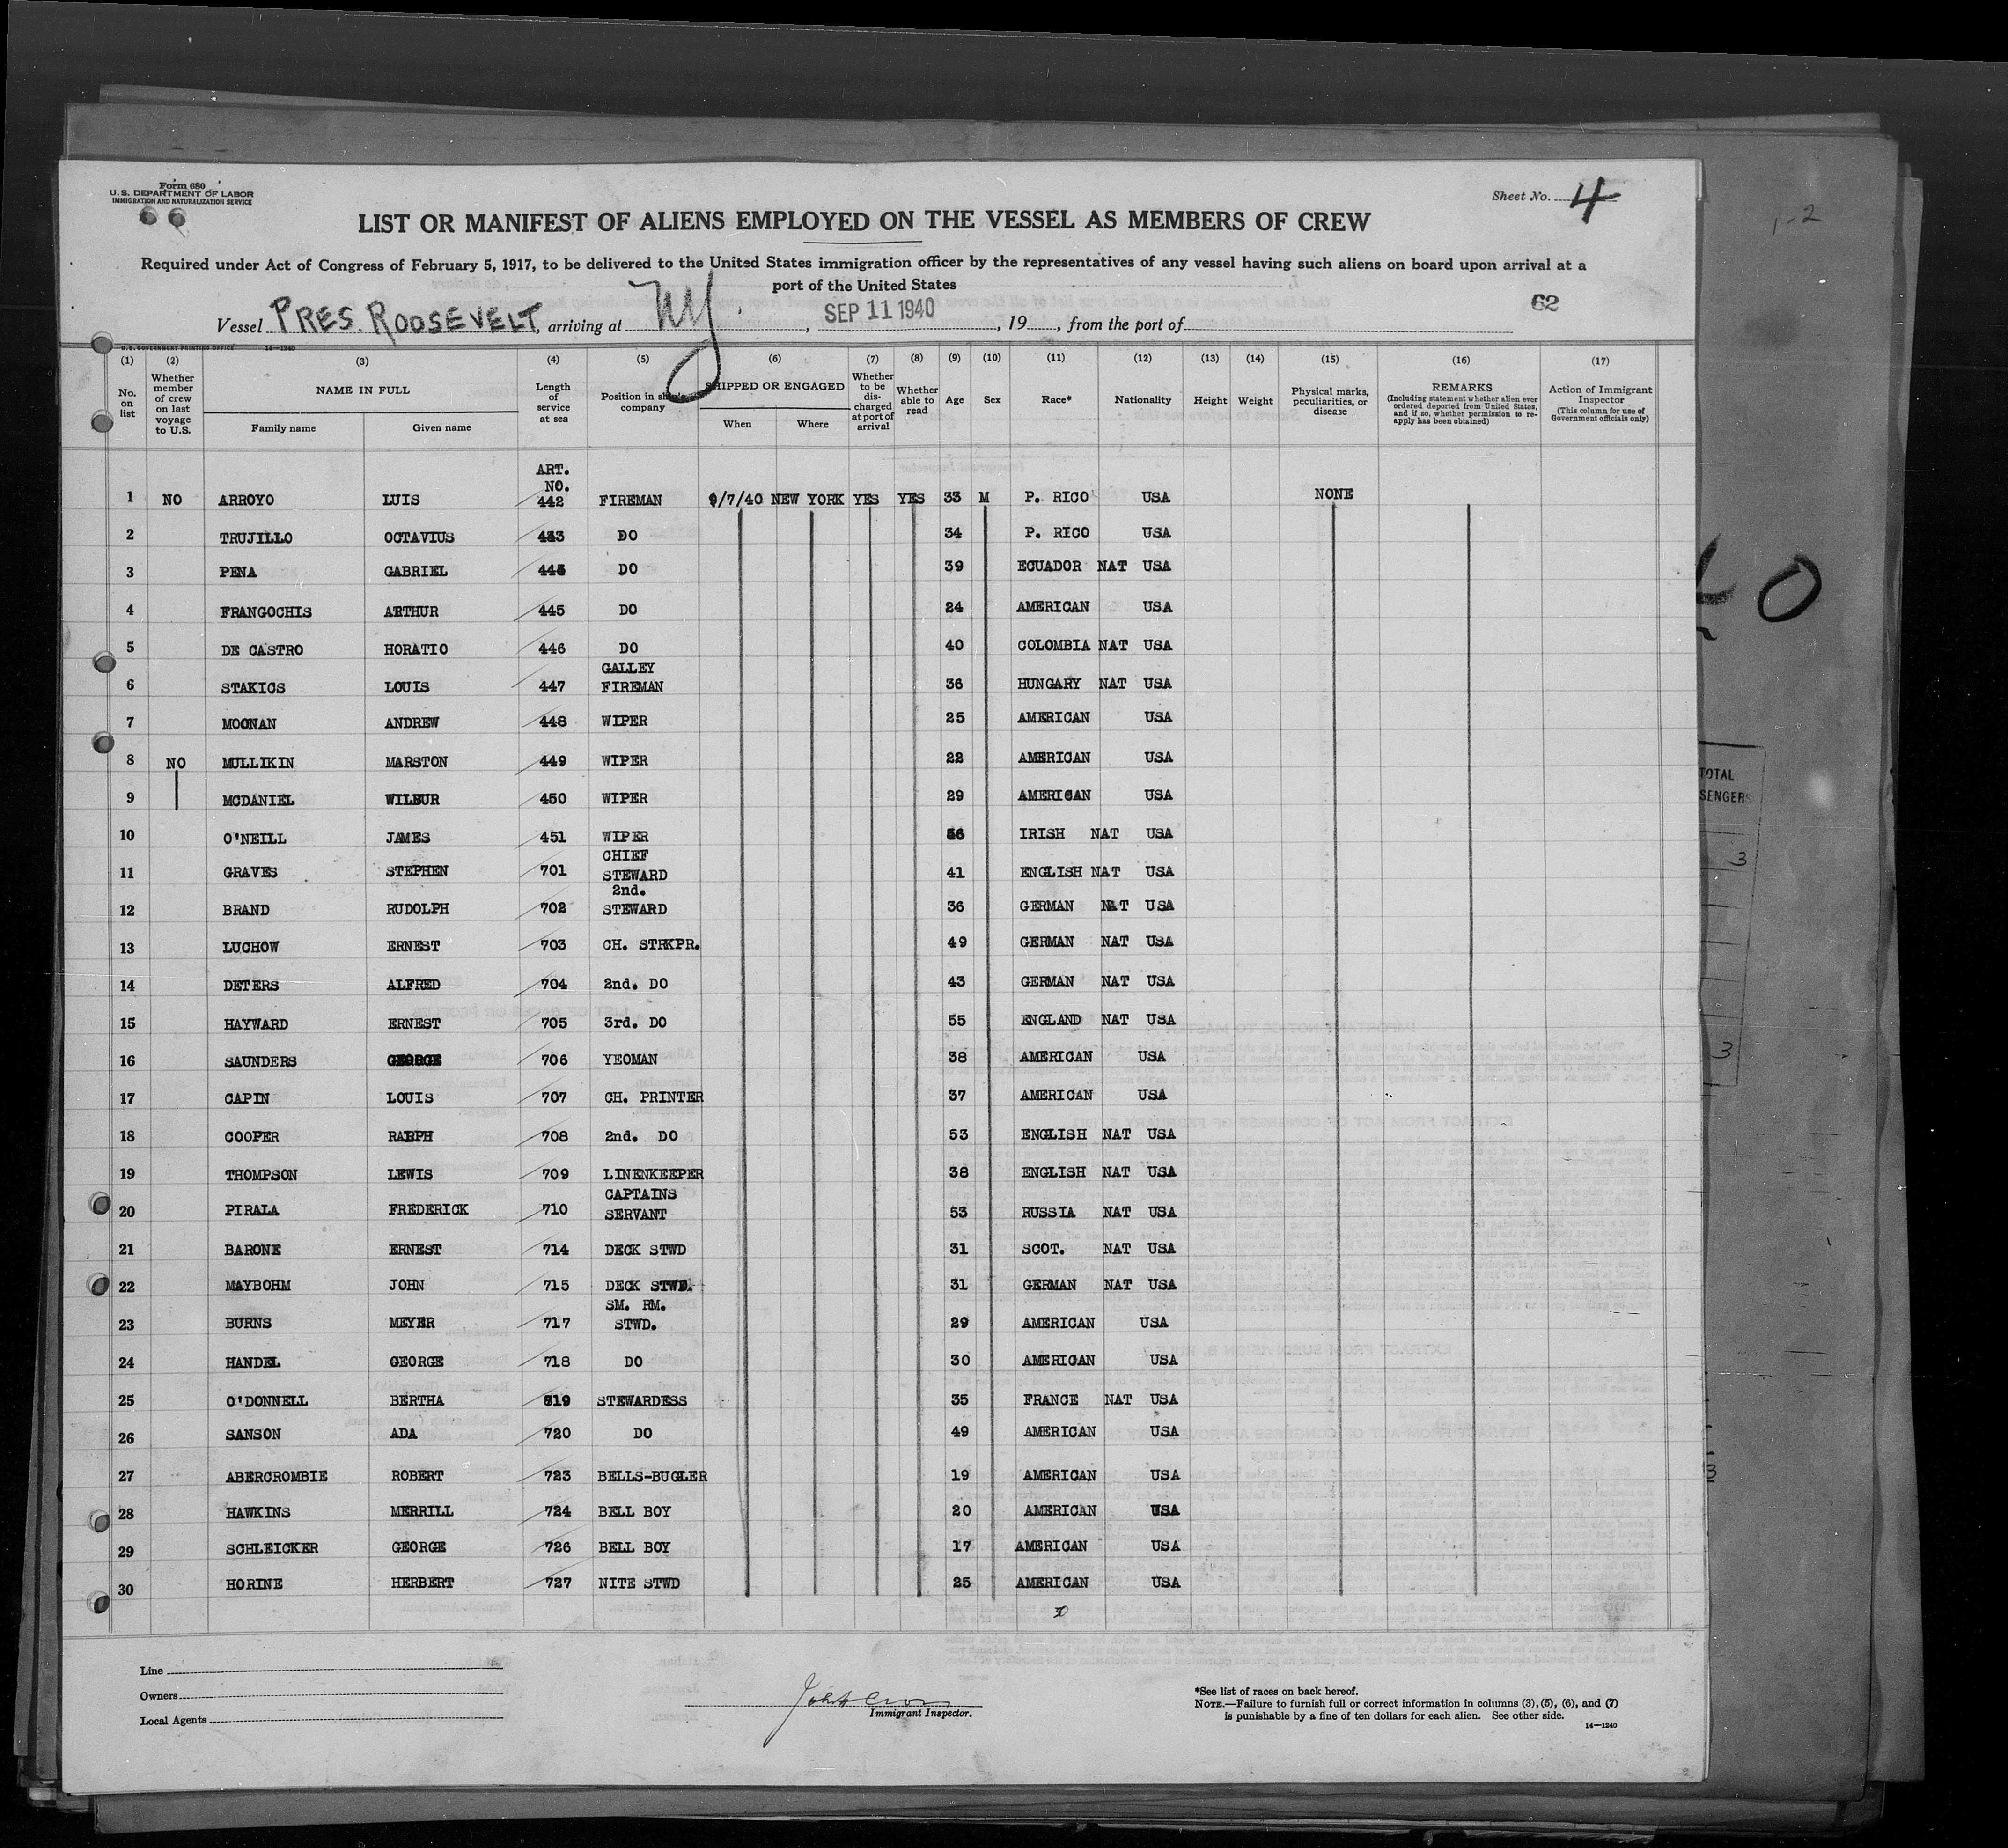 Form 680
U.S. DEPARTMENT OF LABOR
IMMIGRATION AND NATURALIZATION SERVICE
Sheet No. 4
LIST OR MANIFEST OF ALIENS EMPLOYED ON THE VESSEL AS MEMBERS OF CREW
Required under Act of Congress of February 5, 1917, to be delivered to the United States immigration officer by the representatives of any vessel having such aliens on board upon arrival at a
port of the United States
62
Vessel PRES. ROOSEVELT, arriving at NY, SEP 11 1940, 19, from the port of
U.S. GOVERNMENT PRINTING OFFICE 14—1240
(1) (2) (3) (4) (5) (6) (7) (8) (9) (10) (11) (12) (13) (14) (15) (16) (17)
No. on list
Whether member of crew on last voyage to U.S.
NAME IN FULL
Family name Given name
Length of service at sea
Position in ship's company
SHIPPED OR ENGAGED
When Where
Whether to be discharged at port of arrival
Whether able to read
Age Sex Race* Nationality Height Weight
Physical marks, peculiarities, or disease
REMARKS
(Including statement whether alien ever ordered deported from United States, and if so, whether permission to reapply has been obtained)
Action of Immigrant Inspector
(This column for use of Government officials only)
ART.
NO.
1 NO ARROYO LUIS 442 FIREMAN 9/7/40 NEW YORK YES YES 33 M P. RICO USA NONE
2 TRUJILLO OCTAVIUS 443 DO 34 P. RICO USA
3 PENA GABRIEL DO 39 ECUADOR NAT USA
4 FRANGOCHIS ARTHUR 445 DO 24 AMERICAN USA
5 DE CASTRO HORATIO 446 DO 40 COLOMBIA NAT USA
GALLEY
6 STAKICS LOUIS 447 FIREMAN 36 HUNGARY NAT USA
7 MOONAN ANDREW 448 WIPER 25 AMERICAN USA
8 NO MULLIKIN MARSTON 449 WIPER 22 AMERICAN USA
9 MCDANIEL WILBUR 450 WIPER 29 AMERICAN USA
10 O'NEILL JAMES 451 WIPER IRISH NAT USA
CHIEF
11 GRAVES STEPHEN 701 STEWARD 41 ENGLISH NAT USA
2nd.
12 BRAND RUDOLPH 702 STEWARD 36 GERMAN NAT USA
13 LUCHOW ERNEST 703 CH. STRKPR. 49 GERMAN NAT USA
14 DETERS ALFRED 704 2nd. DO 43 GERMAN NAT USA
15 HAYWARD ERNEST 705 3rd. DO 55 ENGLAND NAT USA
16 SAUNDERS GEORGE 706 YEOMAN 38 AMERICAN USA
17 CAPIN LOUIS 707 CH. PRINTER 37 AMERICAN USA
18 COOPER RALPH 708 2nd. DO 53 ENGLISH NAT USA
19 THOMPSON LEWIS 709 LINENKEEPER 38 ENGLISH NAT USA
CAPTAINS
20 PIRALA FREDERICK 710 SERVANT 53 RUSSIA NAT USA
21 BARONE ERNEST 714 DECK STWD 31 SCOT. NAT USA
22 MAYBOHM JOHN 715 DECK STWD. 31 GERMAN NAT USA
SM. RM.
23 BURNS MEYER 717 STWD. 29 AMERICAN USA
24 HANDEL GEORGE 718 DO 30 AMERICAN USA
25 O'DONNELL BERTHA STEWARDESS 35 FRANCE NAT USA
26 SANSON ADA 720 DO 49 AMERICAN USA
27 ABERCROMBIE ROBERT 723 BELLS-BUGLER 19 AMERICAN USA
28 HAWKINS MERRILL 724 BELL BOY 20 AMERICAN USA
29 SCHLEICKER GEORGE 726 BELL BOY 17 AMERICAN USA
30 HORINE HERBERT 727 NITE STWD 25 AMERICAN USA
Line
Owners
Local Agents
Immigrant Inspector.
*See list of races on back hereof.
NOTE.—Failure to furnish full or correct information in columns (3), (5), (6), and (7)
is punishable by a fine of ten dollars for each alien. See other side.
14—1240
1-2
40
TOTAL
SENGERS
3
3
3